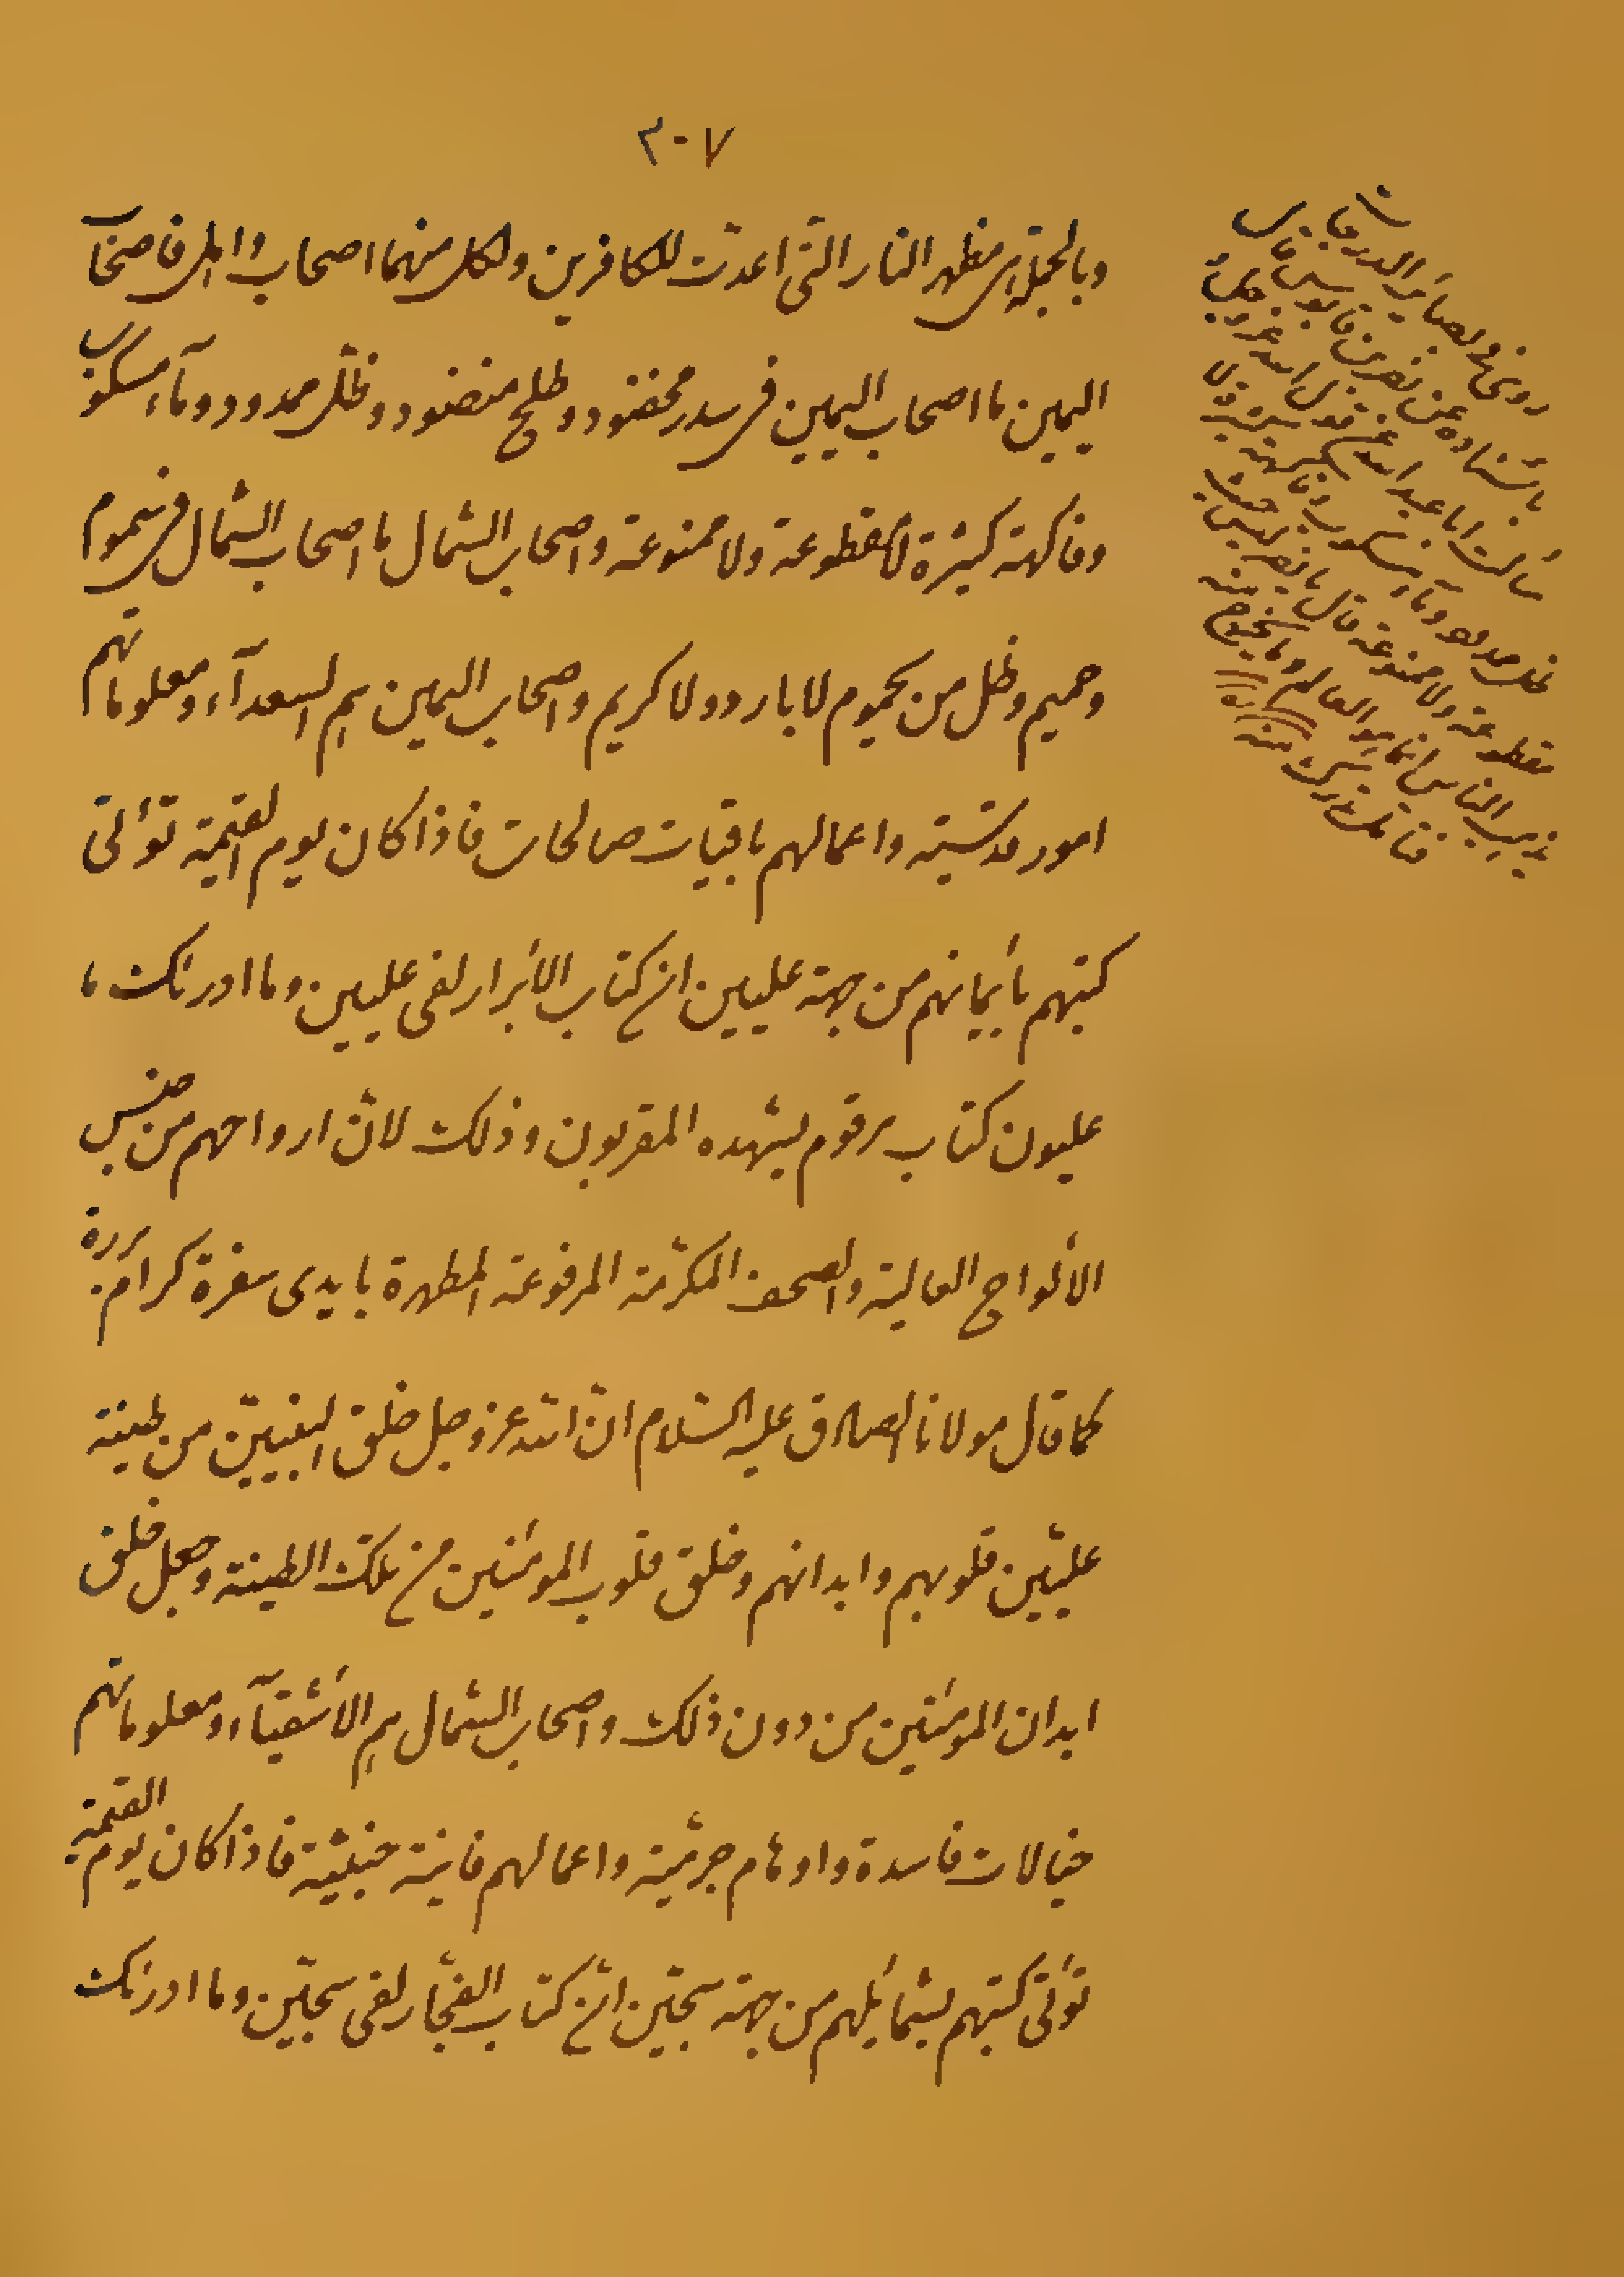 ٣٠٧
وبالجملة هى مظهر النار التّى اعدت للكافرين ولكل منهما اصحاب واهل فاصحاب
اليمين ما اصحاب اليمين فى سدر مخضود وطلح منضود وظلّ ممدود ومآء مسكوب
وفاكهة كثيرة لا مقطوعة ولا ممنوعة واصحاب الشمال ما اصحاب الشمال فى سموم
وحميم وظل من يحموم لا بارد ولا كريم واصحاب اليمين هم السعدآء ومعلوماتهم
امور قدسّية واعمالهم باقيات صالحات فاذا كان يوم القيمة تؤتى
كتبهم بأيمانهم من جهة عليين ان كتاب الأبرار لفى عليين وما ادرنك ما
عليون كتاب مرقوم يشهده المقربون وذلك لانّ ارواحهم من جنس
الألواح العالية والصحف المكرّمة المرفوعة المطهرة بايدى سفرة كرام بررة
كما قال مولانا الصادق عليه السّلام انّ الله عز وجل خلق النبيّين من طينة
عليّين قلوبهم وابدانهم وخلق قلوب المومنين من تلك الطينة وجعل خلق
ابدان المومنين من دون ذلك واصحاب الشمال هم الأشقيآء ومعلوماتهم
خيالات فاسدة واوهام جرميّة واعمالهم فانية خبيثة فاذا كان يوم القيمة
تؤتى كتبهم بشمائلهم من جهة سجيّن انّ كتاب الفجّار لفى سجيّن وما ادرنك
روى فى بصائر الدرجات
باسناده عن نصر بن قابوس قال
سألت ابا عبد الله ع عن قول الله عز وجل
ظل ممدود ومآء مسكوب وفاكهة كثيرة لا
مقطوعة ولا ممنوعة قال يا نصر ليس حيث
يذهب الناس انما هو العالم وما يخرج منه
فتأمل تدرك منه